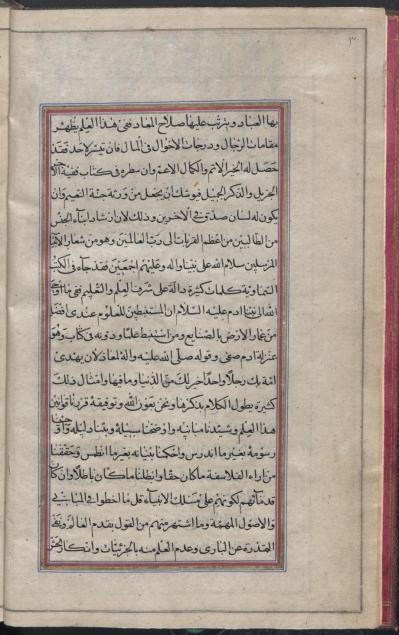 بها العباد ويترتب عليها صلاح المعاد ففى هذا العلم يظهر
مقامات الرجال ودرجات الاحوال فى المال فان تيسر لاحد فقد
حصل له الخير الاتم والكمال الاعم وان سطره فى كتاب ففيه الاجر
الجزيل والذكر الجميل فيوشك ان يجعل من ورثة جنة النعيم وان
يكون له لسان صدق فى الاخرين وذلك لان ارشاد ابناء الجنس
من الطالبين من اعظم القربات الى رب العالمين وهو من شعار الانبياء
المرسلين سلام الله على نبينا واله وعليهم اجمعين فقد جاء فى الكتب
السماوية كلمات كثيرة دالة على شرف العلم والتعليم ففى ما اوحى
الله الى نبينا ادم عليه السلام ان المستنبطين للعلوم عندى افضل
من عمار الارض بالصنايع ومن استنبط علما ودونه فى كتاب فهو
عنزلة ادم صفى وقوله صلى الله عليه واله لمعاذ لان يهدى
الله بك رجلا واحدا خير لك من الدنيا وما فيها وامثال ذلك
كثيرة يطول الكلام بذكرها ونحن بعون الله وتوفيقه قررنا قوانين
هذا العلم وشيدنا مبانيه واوضحنا سبيله وبينا دليله
رسومه بعير ما اندرس واحكمنا بنيانه بعد ما انطمس وحققنا
من اراء الفلاسفة ما كان حقا وابطلنا ما كان باطلا وان كان
قدماؤهم لكونهم على مسلك الانبياء قل ما اخطوا فى المبانى
والاصول المهمة وما اشتهر منهم من القول بقدم العالم ونفى
القدرة عن البارى وعدم العلم منه بالجزئيات وانكار الحشر